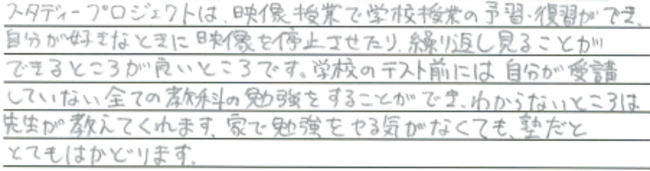 スタディープロジェクトは、映像授業で学校授業の予習・復習ができ、
自分が好きなときに映像を停止させたり、繰り返し見ることが
できるところが良いところです。学校のテスト前には自分が受講
していない全ての教科の勉強をすることができ、わからないところは
先生が教えてくれます。家で勉強をやる気がなくても、塾だと
とてもはかどります。